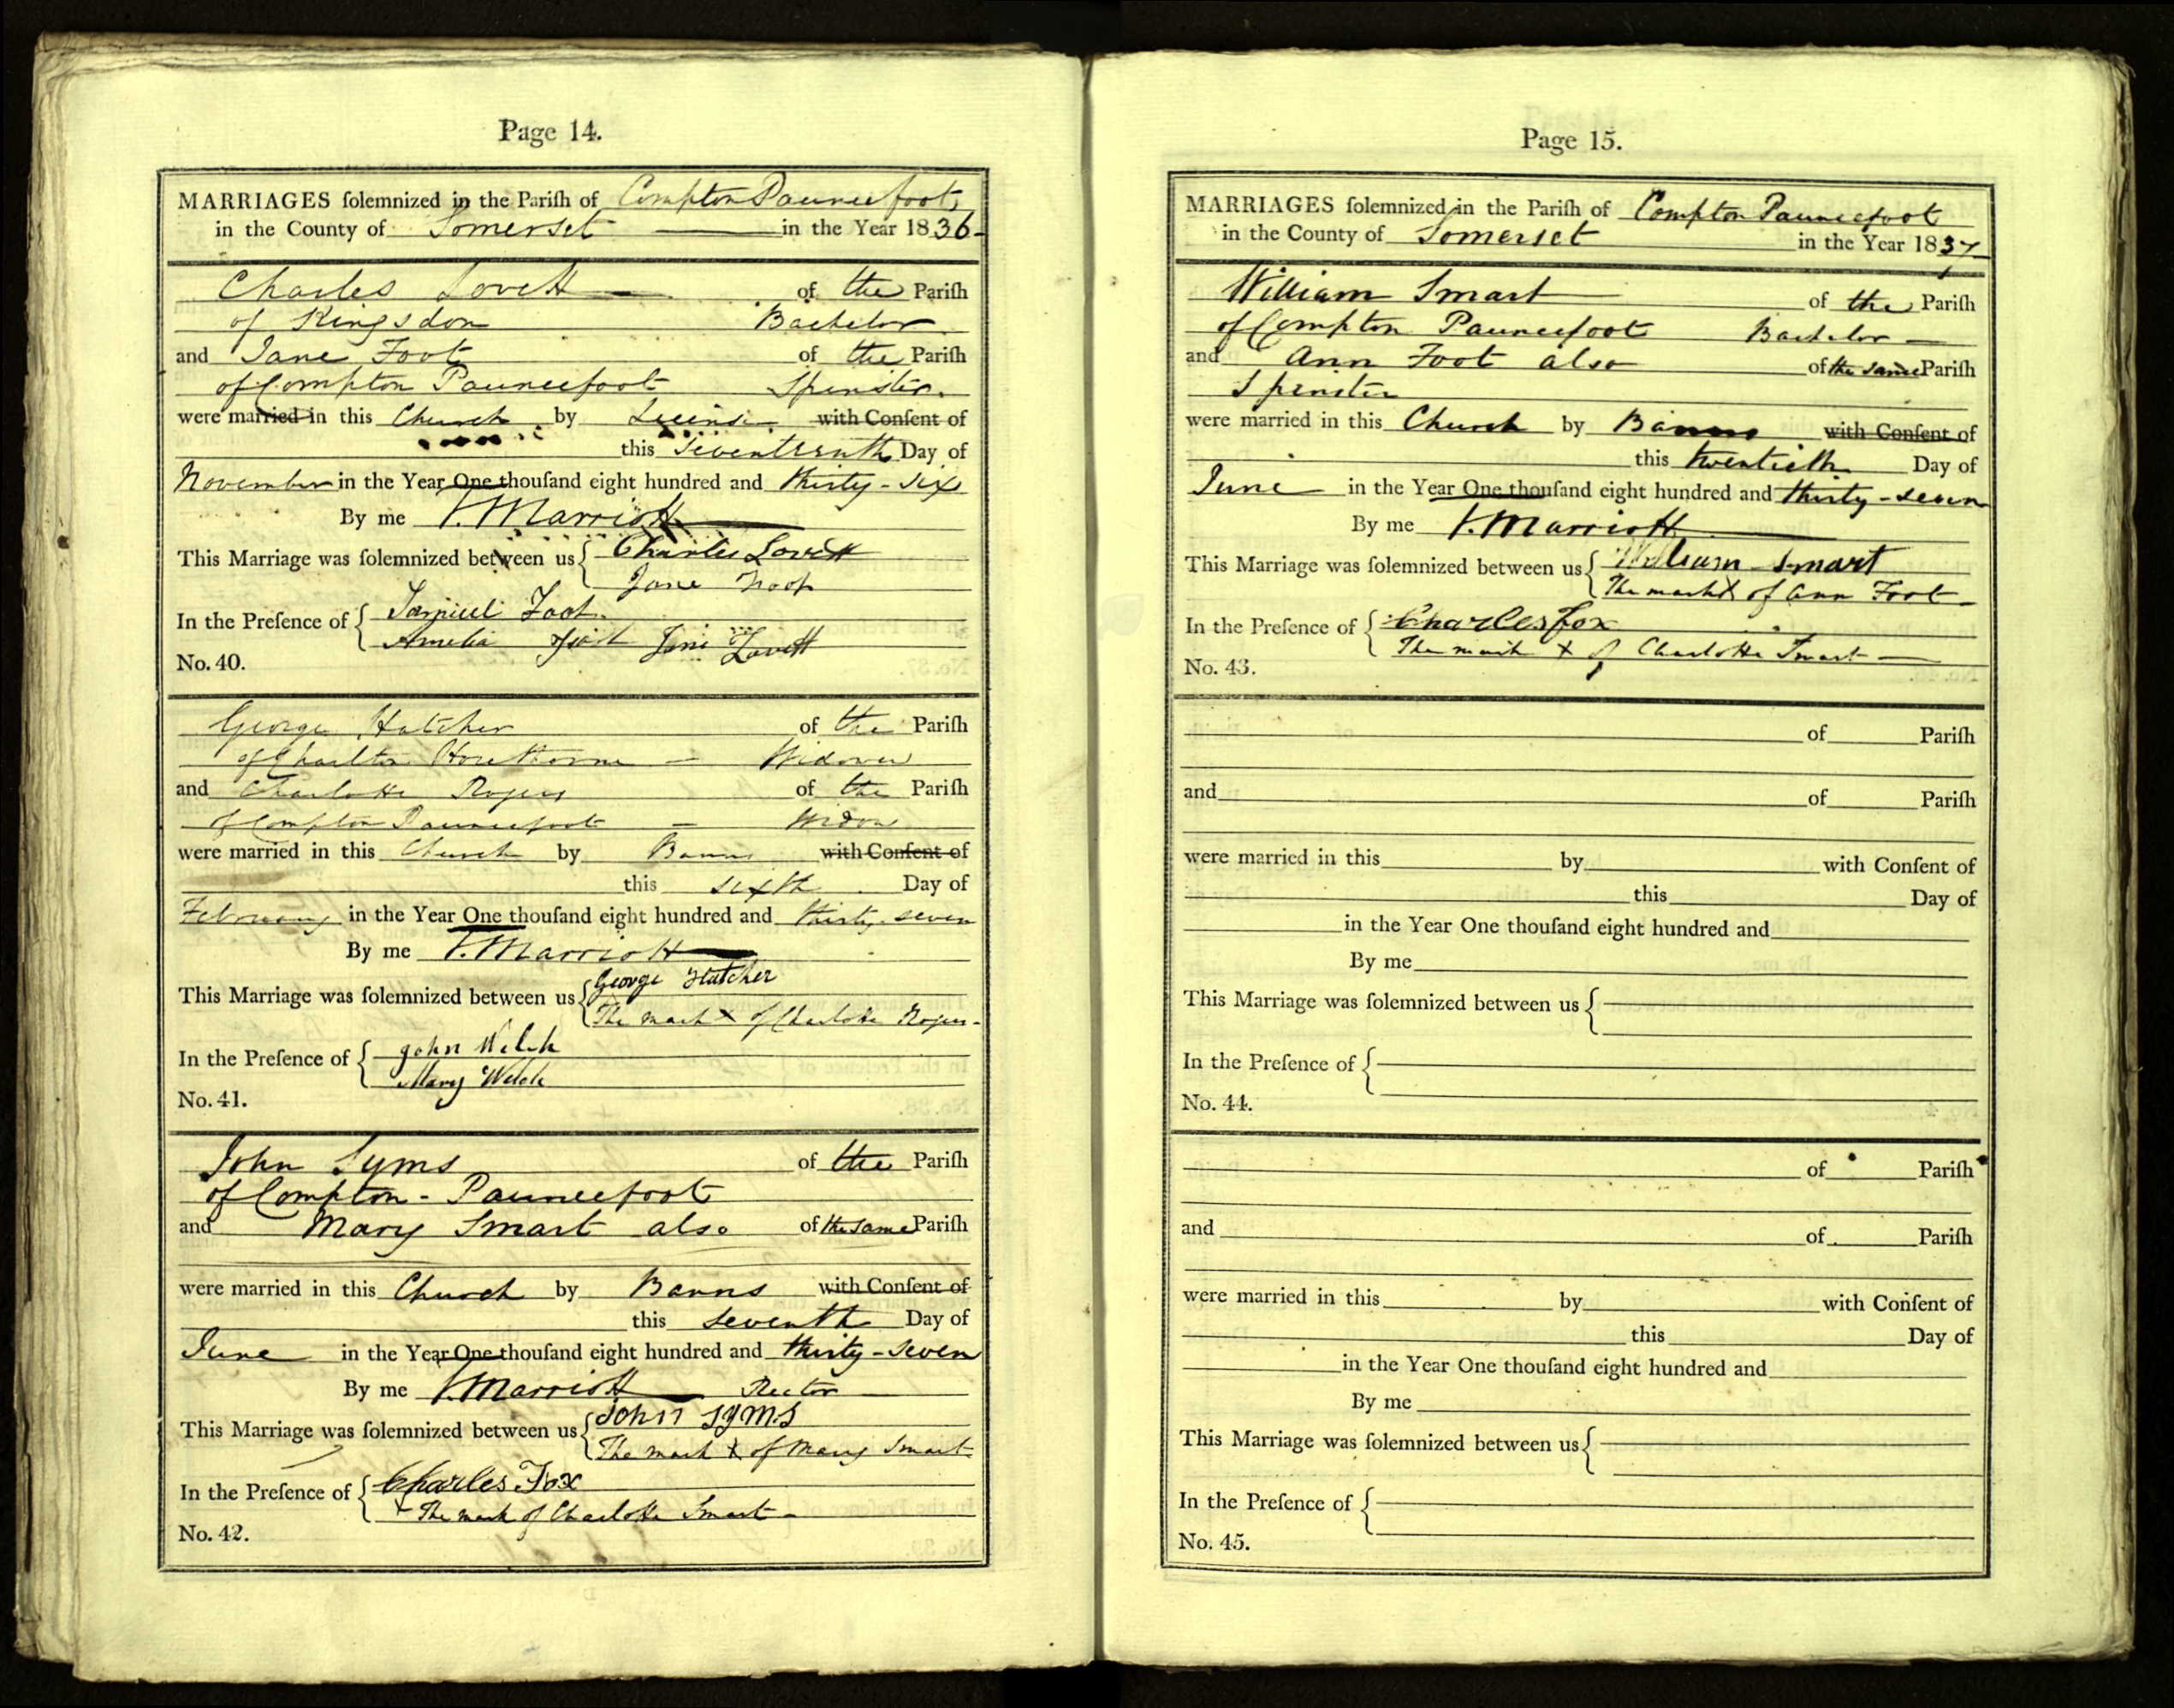 Page 14.
MARRIAGES ſolemnized in the Pariſh of Compton Pauncefoot,
in the County of Somerset in the Year 1836
Charles Lovett of the Pariſh
of Kingsdon Bachelor
and Jane Foot of the Pariſh
of Compton Pauncefoot Spinster.
were married in this Church by Licence with Conſent of
this Seventeenth Day of
November in the Year One thouſand eight hundred and thirty-six
By me Marriott
This Marriage was ſolemnized between us { Charles Lovett
Jane Foot
In the Preſence of { Samuel Foot
Amelia Foot Jane Lovett
No. 40.
George Hatcher of the Pariſh
of Charlton Horethorne Widower
and Charlotte Rogers of the Pariſh
of Compton Pauncefoot Widow
were married in this Church by Banns with Conſent of
this sixth Day of
February in the Year One thouſand eight hundred and thirty-seven
By me Marriott
This Marriage was ſolemnized between us { George Hatcher
The mark X of Charlotte Rogers
In the Preſence of { John Welch
Mary Welch
No. 41.
John Syms of the Pariſh
of Compton-Pauncefoot
and Mary Smart also of the same Pariſh
were married in this Church by Banns with Conſent of
this seventh Day of
June in the Year One thouſand eight hundred and thirty-seven
By me Marriott Rector
This Marriage was ſolemnized between us { John Syms
The mark X of Mary Smart
In the Preſence of { Charles Fox
X The mark of Charlotte Smart
No. 42.
Page 15.
MARRIAGES ſolemnized in the Pariſh of Compton Pauncefoot
in the County of Somerset in the Year 1837
William Smart of the Pariſh
of Compton Pauncefoot Bachelor
and Ann Foot also of the same Pariſh
Spinster
were married in this Church by Banns with Conſent of
this twentieth Day of
June in the Year One thouſand eight hundred and thirty-seven
By me Marriott
This Marriage was ſolemnized between us { William Smart
The mark X of Ann Foot
In the Preſence of { Charles Fox
The mark X of Charlotte Smart
No. 43.
of Pariſh
and of Pariſh
were married in this by with Conſent of
this Day of
in the Year One thouſand eight hundred and
By me
This Marriage was ſolemnized between us {
In the Preſence of {
No. 44.
of Pariſh
and of Pariſh
were married in this by with Conſent of
this Day of
in the Year One thouſand eight hundred and
By me
This Marriage was ſolemnized between us {
In the Preſence of {
No. 45.